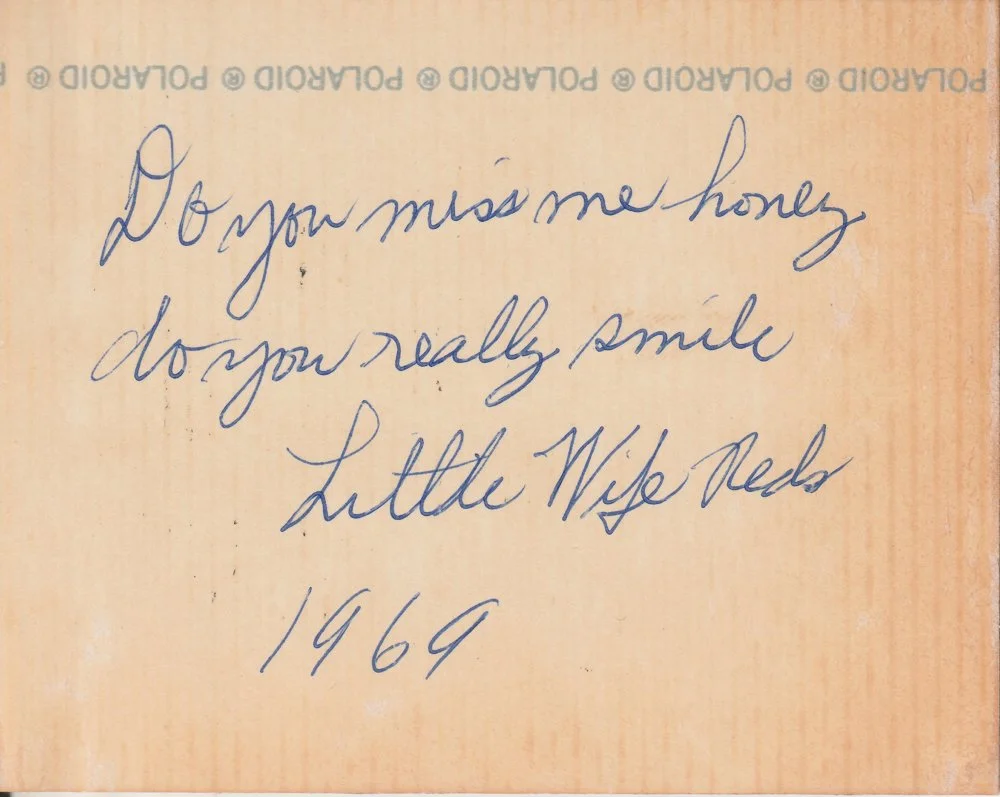 ® POLAROID ® POLAROID ® POLAROID ® POLAROID ® POLAROID
Do you miss me honey
do you really smile
Little Wife Reds
1969